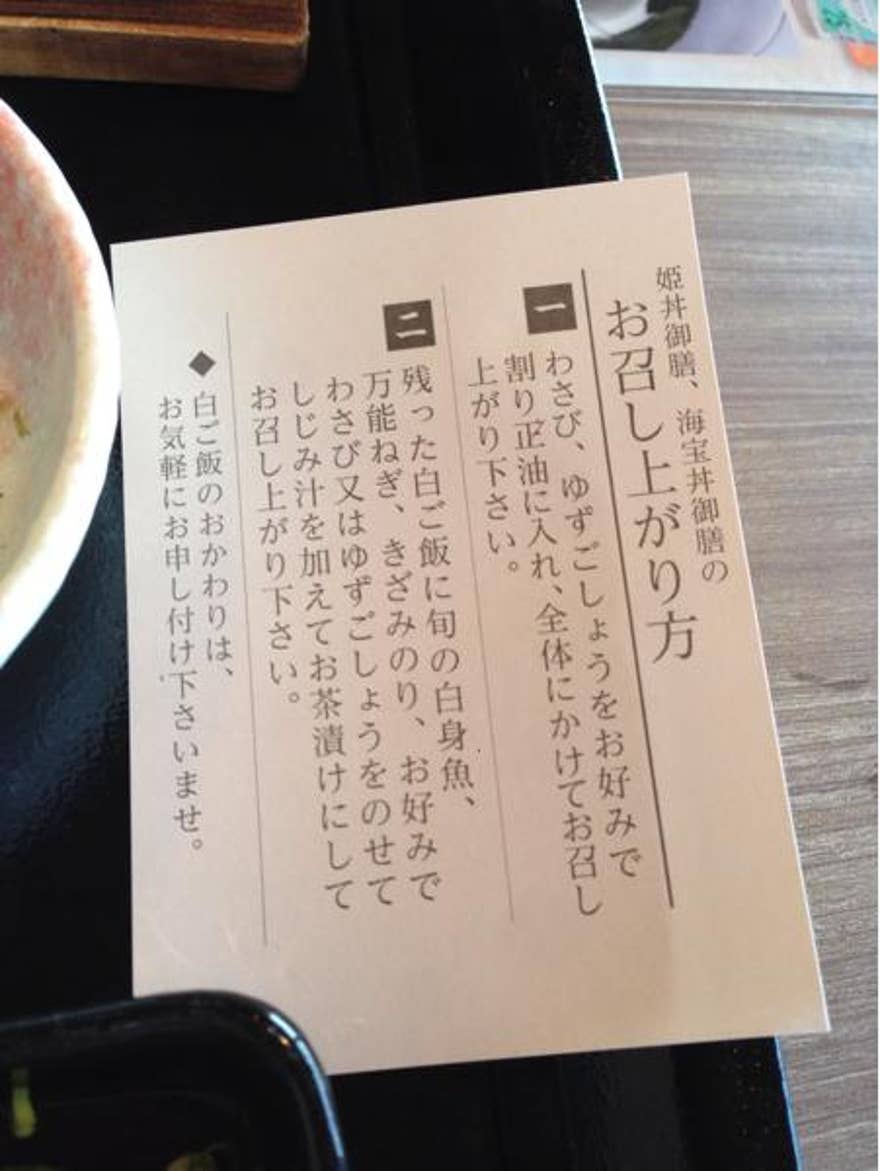 姫丼御膳、海宝丼御膳の
お召し上がり方
一
わさび、ゆずごしょうをお好みで
割り正油に入れ、全体にかけてお召し
上がり下さい。
二
残った白ご飯に旬の白身魚、
万能ねぎ、きざみのり、お好みで
わさび又はゆずごしょうをのせて
しじみ汁を加えてお茶漬けにして
お召し上がり下さい。
◆白ご飯のおかわりは、
お気軽にお申し付け下さいませ。